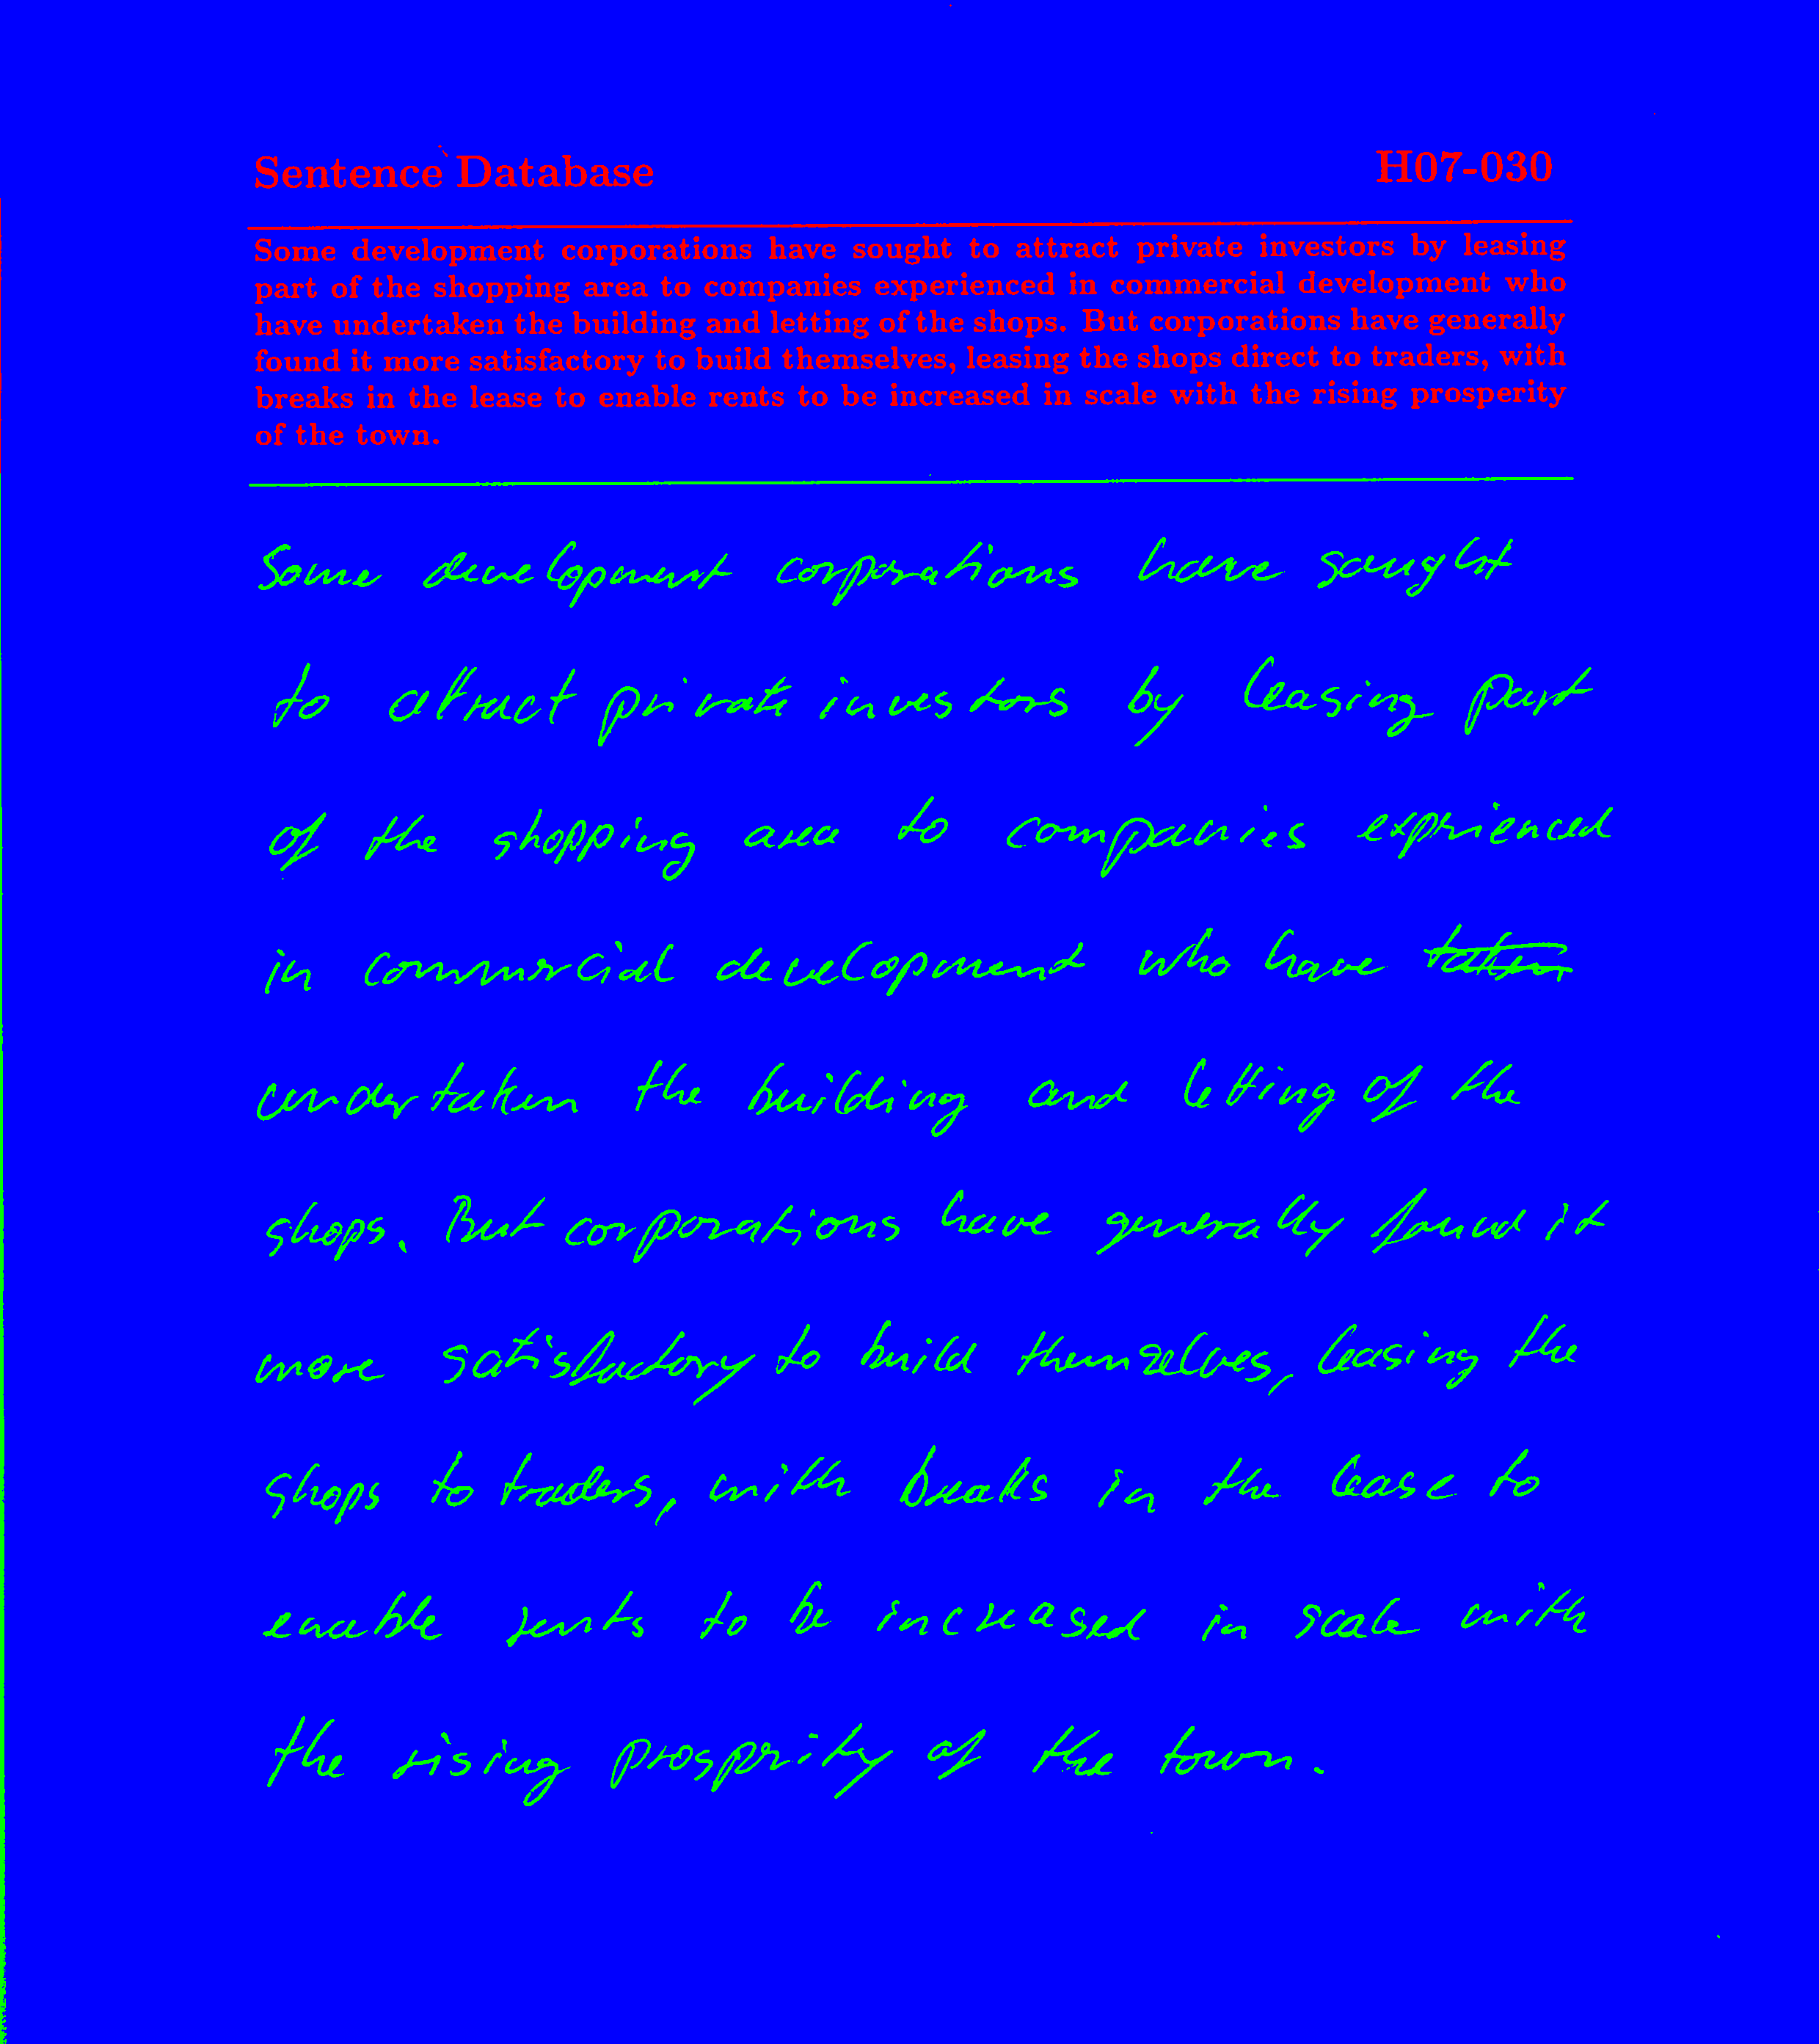 Sentence Database H07-030
Some development corporations have sought to attract private investors by leasing
part of the shopping area to companies experienced in commercial development who
have undertaken the building and letting of the shops. But corporations have generally
found it more satisfactory to build themselves, leasing the shops direct to traders, with
breaks in the lease to enable rents to be increased in scale with the rising prosperity
of the town.
Some development corporations have sought
to attract private investors by leasing part
of the shopping area to companies exprienced
in commercial development who have
undertaken the building and letting of the
shops. But corporations have generally found it
more satisfactory to build themselves, leasing the
shops to traders, with breaks in the lease to
enable rents to be increased in scale with
the rising prosprity of the town.